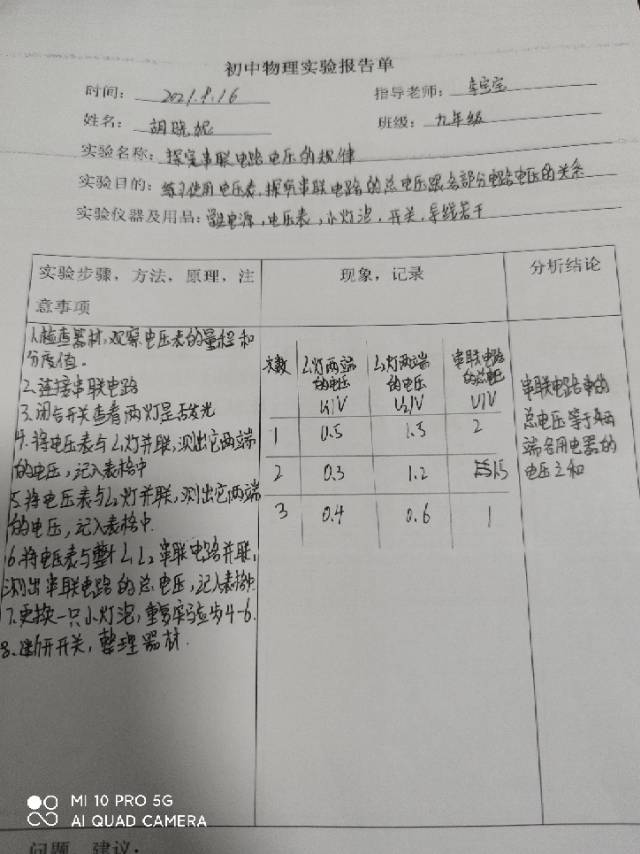 初中物理实验报告单
时间: 2021.9.16 指导老师:
姓名: 胡晓妮 班级: 九年级
实验名称: 探究串联电路电压的规律
实验目的: 练习使用电压表,探究串联电路的总电压跟各部分电路电压的关系
实验仪器及用品: 电源,电压表,小灯泡,开关,导线若干
实验步骤,方法,原理,注意事项
现象,记录
分析结论
1.检查器材,观察电压表的量程和
分度值.
2.连接串联电路
3.闭合开关查看两灯是否发光
4.将电压表与L1灯并联,测出它两端
的电压,记入表格中
5.将电压表与L2灯并联,测出它两端
的电压,记入表格中.
6.将电压表与整个L1 L2串联电路并联,
测出串联电路的总电压,记入表格中
7.更换一只小灯泡,重复实验步4-6.
8.断开开关,整理器材.
次数 L1灯两端的电压 U1/V L2灯两端的电压 U2/V 串联电路的总电压 U/V
1 0.5 1.5 2
2 0.3 1.2 1.5
3 0.4 0.6 1
串联电路中的
总电压等于
端各用电器的
电压之和
问题,建议:
MI 10 PRO 5G
AI QUAD CAMERA